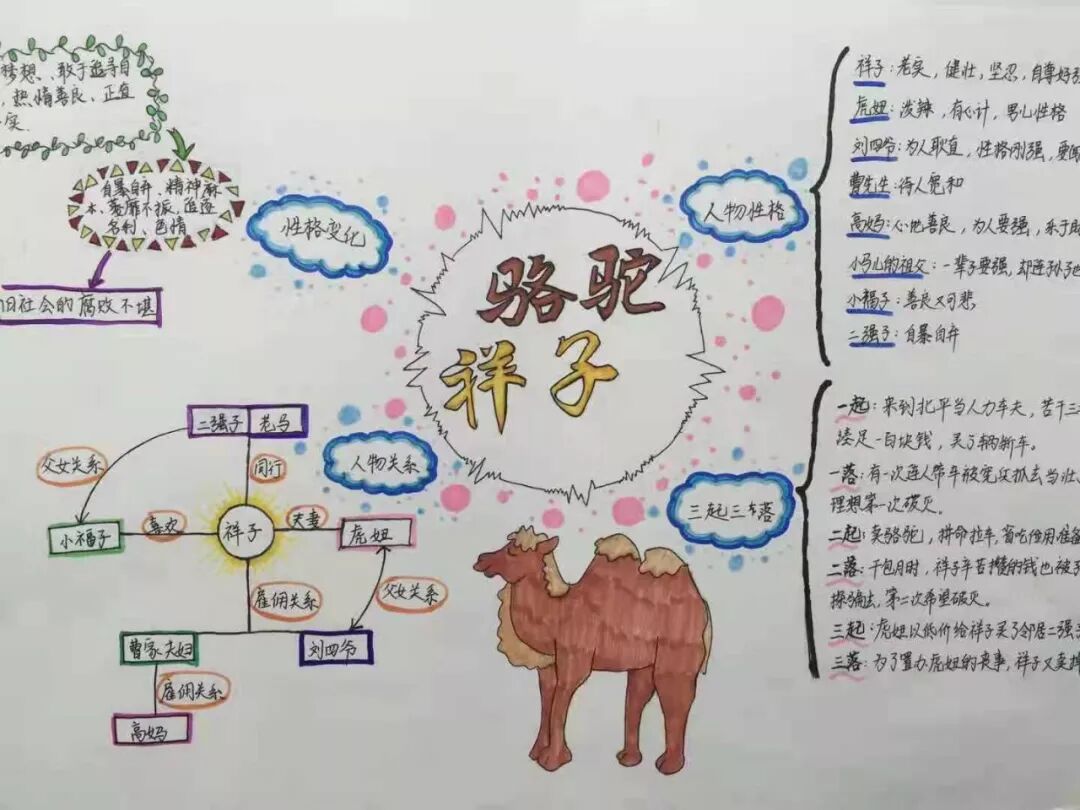 梦想、敢于追寻自
，热情善良、正直
实.
自暴自弃、精神麻
木、萎靡不振、追逐
名利、色情
旧社会的腐败不堪
性格变化
骆驼
祥子
人物性格
祥子：老实，健壮，坚忍，自尊好强
虎妞：泼辣，有心计，男儿性格
刘四爷：为人耿直，性格刚强，要
曹先生：待人宽和
高妈：心地善良，为人要强，乐于
小马儿的祖父：一辈子要强，却连孙子也
小福子：善良又可悲
二强子：自暴自弃
人物关系
二强子 老马
父女关系
同行
小福子
喜欢
祥子
夫妻
虎妞
雇佣关系
父女关系
曹家夫妇
刘四爷
雇佣关系
高妈
三起三落
一起：来到北平当人力车夫，苦干三
凑足一百块钱，买了辆新车。
一落：有一次连人带车被宪兵抓去当壮
理想第一次破灭。
二起：卖骆驼，拼命拉车，省吃俭用准备
二落：干包月时，祥子辛苦攒的钱也被
探骗去，第二次希望破灭。
三起：虎妞以低价给祥子买了邻居二强子
三落：为了置办虎妞的丧事，祥子又卖掉